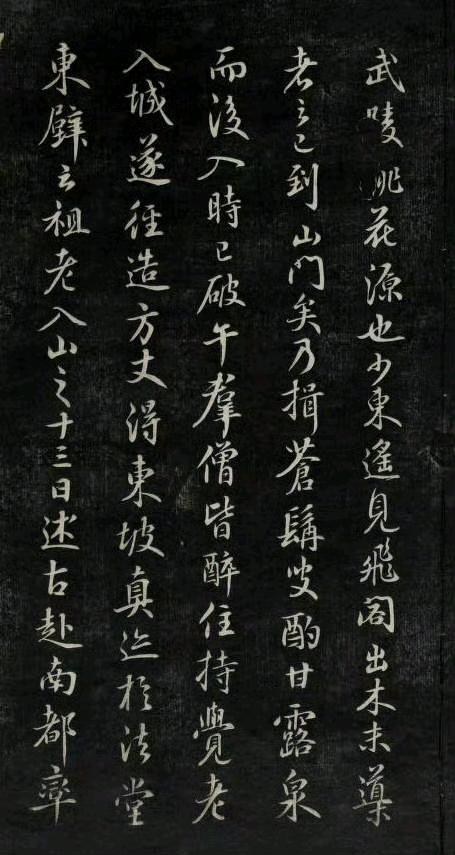 武陵桃花源也少東遙見飛閣出木末導
者言已到山門矣乃揖蒼髯叟酌甘露泉
而後入時已破午羣僧皆醉住持覺老
入城遂徑造方丈得東坡真迹於法堂
東壁云祖老入山之十三日述古赴南都率